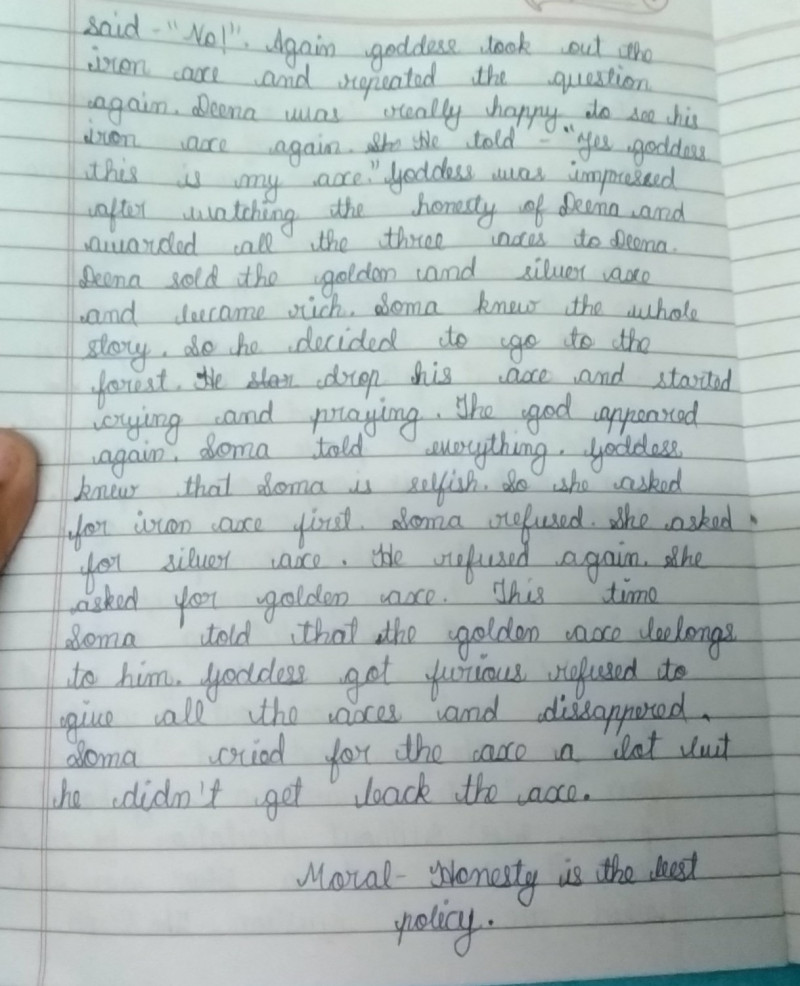 said - "No!". Again goddess took out the
iron axe and repeated the question
again. Deena was really happy to see his
iron axe again. She He told - "Yes goddess
this is my axe." Goddess was impressed
after watching the honesty of Deena and
awarded all the three axes to Deena.
Deena sold the golden and silver axe
and became rich. Soma knew the whole
story. So he decided to go to the
forest. He star drop his axe and started
crying and praying. The god appeared
again. Soma told everything. Goddess
knew that Soma is selfish. So she asked
for iron axe first. Soma refused. She asked
for silver axe. He refused again. She
asked for golden axe. This time
Soma told that the golden axe belongs
to him. Goddess got furious refused to
give all the axes and dissappered.
Soma cried for the axe a lot but
he didn't get back the axe.
Moral - Honesty is the best
policy.